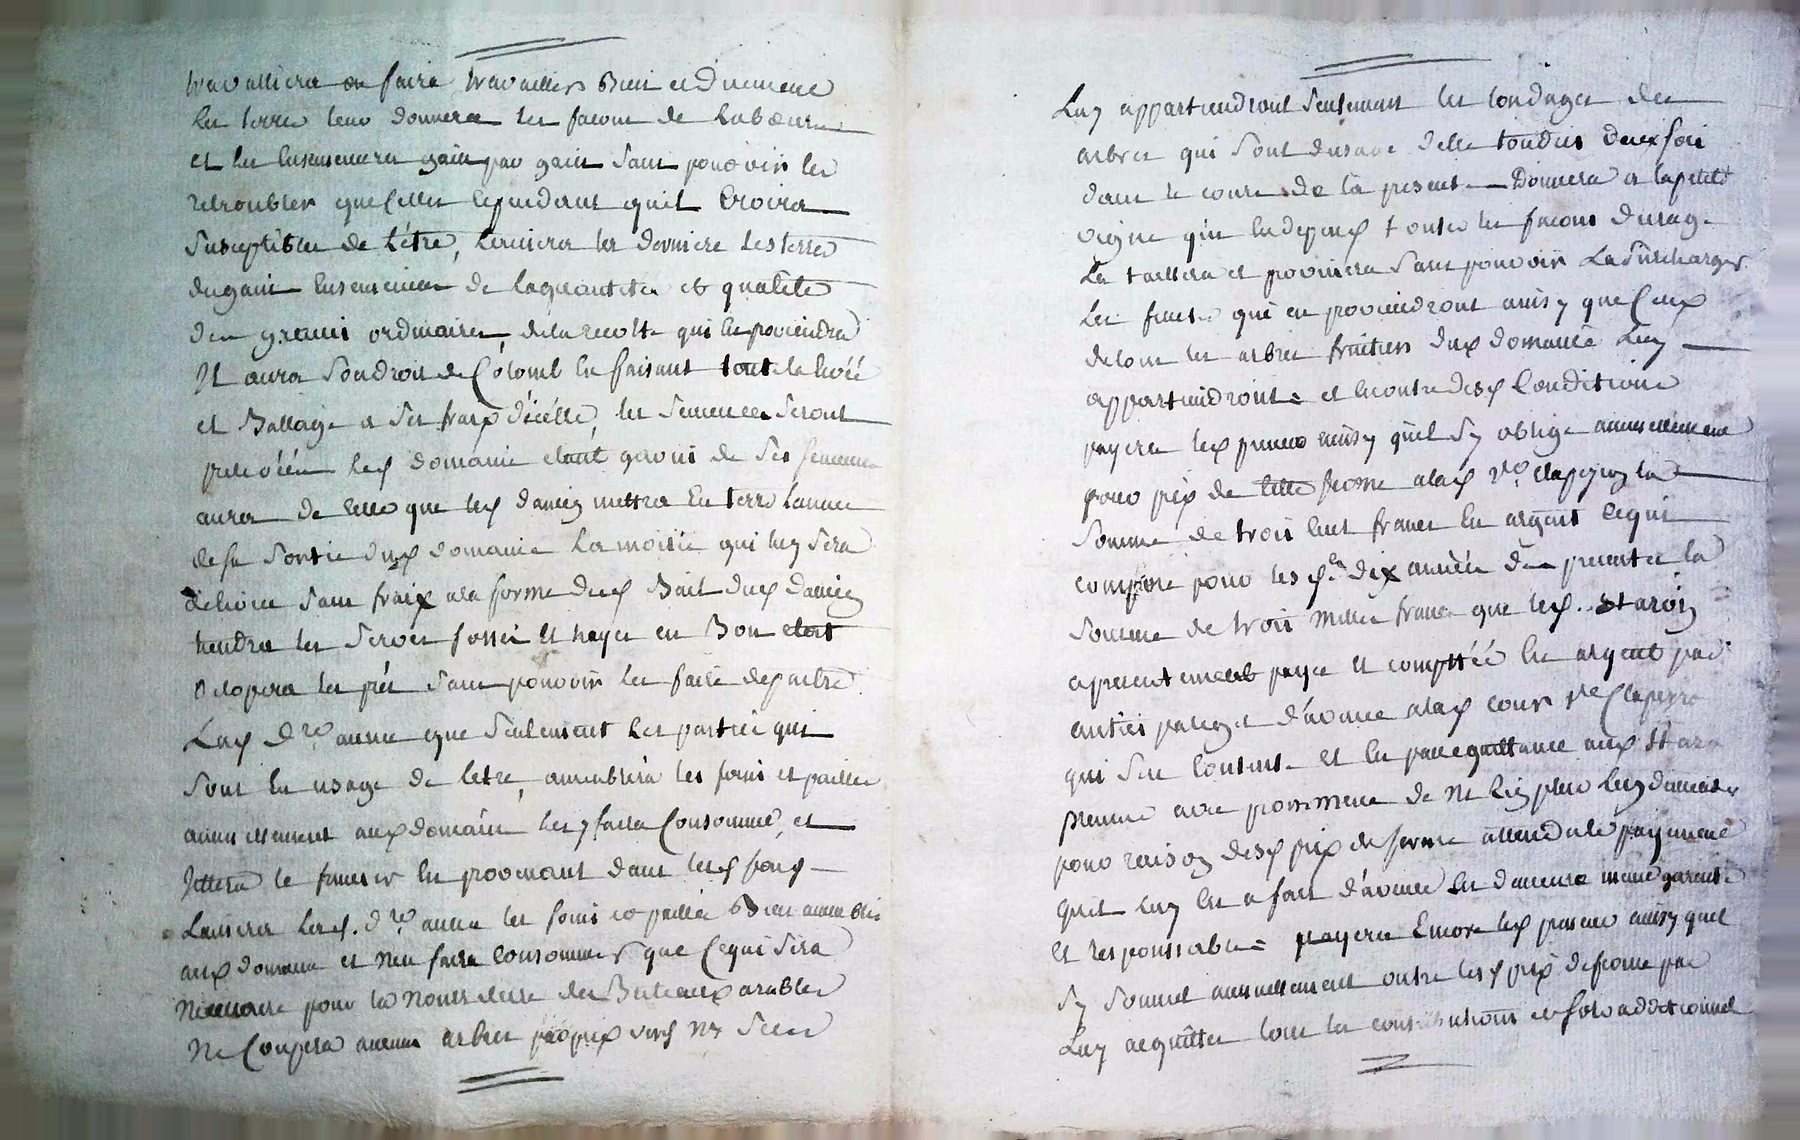 travalliera ou faire travailler Bien et Duement
Les terres leur donnera les facons de Labœur
et les Ensemencera gain par gain sans pouvoir les
retroubler que Celles Cependant quil Croira
susceptibles de L'être, Laissera les derniere les terres
du gain Ensemencer de la quantitée et qualité
des grains ordinaires, de la recolte qui En proviendra
Il aura son droit de Colomb En faisant toute la levéé
et Battage a ses fraix d'icélle, les semences seront
prelevéés led domaine etant garni de ses semences
aura de celle que led daniez mettra En terre Lannée
de sa sortie dud domaine La moitié qui luy sera
delivrée sans fraix a la forme dud Bail dud daniez
tiendra les serves fossés Et hayes en Bon etat
n'Eclopera les prés sans pouvoir les faire depaitre
Lad Dre année que seulement Les parties qui
sont En usage de letre, ameublira les foins et pailles
annuellement aux domaine les y faira Consommer, et
Jettera le fumier En provenant dans lesd fonds
Laissera lesd. Dre année les foins et pailles Bien ameublis
aux domaine et n'en faira consommer que Ce qui sera
Nécessaire pour la Nourriture des Bestiaux arables
Ne Coupera aucuns arbres par pied vifs Ny secs
Luy appartiendront seulement les tondages des
arbres qui sont dusage delle tondus deux fois
dans le cours de la presente Donnera a la petite
vigne qui En depend toutes les facons dusage
La taillera et provinera sans pouvoir La surcharger
Les fruits qui en proviendront ainsy que Ceux
de tous les arbres fruitiers dux domaine Luy
appartiendront = et Encontre desd Conditions
payera led preneur ainsy quil sy oblige annuellement
pour prix de cette ferme a lad ve. Clapeyron la
somme de trois Cent francs En argent Ce qui
compose pour lesd dix années des presentes la
somme de trois mille francs que led. Staron
a presentement payée et comptéé En argent par
entier payement d'avance a lad cour ve Clapeyron
qui sen contente et En passe quittance aux Staron
preneur avec promesse de ne rien plus luy demander
pour raison desd prix de ferme attendu le payement
quil luy En a fait d'avance En demeure meme garante
et responssable = payera Encore led preneur ainsy quil
sy soumet annuellement outre lesd prix de ferme par
Luy acquittes tous les contributions et sols additionnel